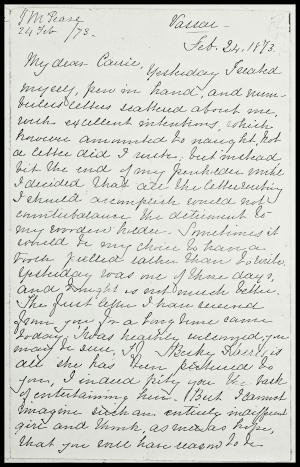 J M Pease
24 Feb /73.
Vassar
Feb. 24. 1873.
My dear Carrie,
Yesterday I seated
myself, pen in hand, and num-
berless letters scattered about me,
with excellent intentions, which
however amounted to naught. Not
a letter did I write; but instead
bit the end of my penholder until
I decided that all the letter writing
I should accomplish would not
counterbalance the detriment to
my wooden holder. Sometimes it
would be my choice to have a
tooth pulled rather than to write.
Yesterday was one of those days,
and tonight is not much better.
The first letter I have received
from you for a long time came
today; 'twas heartily welcomed, you
may be sure. If Becky is
all she has been to
you, I indeed pity you the task
of entertaining her. But I cannot
imagine such an entirely
girl and think, as well as hope,
that you will have reason to be